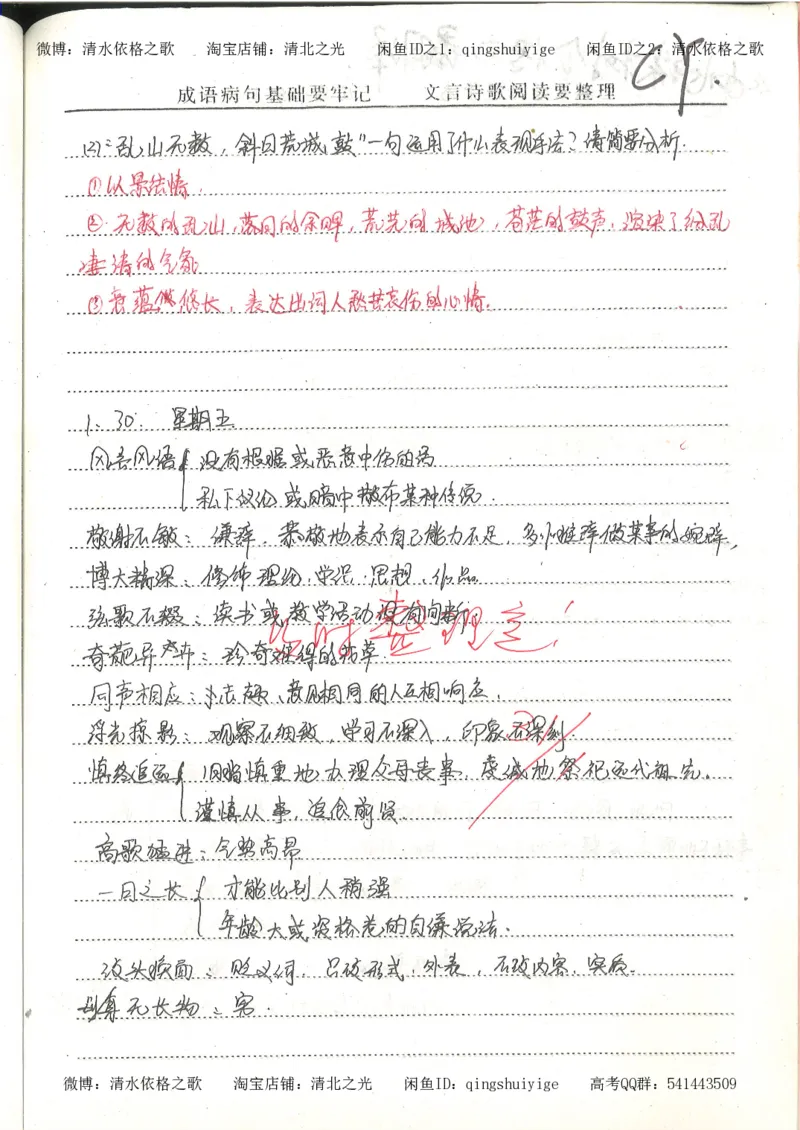 微博：清水依格之歌 淘宝店铺：清北之光 闲鱼ID之1：qingshuiyige 闲鱼ID之2：清水依格之歌
成语病句基础要牢记 文言诗歌阅读要整理
(2)"乱山无数，斜日荒城鼓"一句运用了什么表现手法？请简要分析.
①以景结情.
②无数的乱山，落日的余晖，荒芜的城池，苍茫的鼓声，渲染了纷乱
凄凉的气氛
③意蕴悠长，表达出词人愁苦哀伤的心情.
1、30. 星期五
风言风语{没有根据或恶意中伤的话
私下议论或暗中散布某种传说.
敬谢不敏：谦辞，恭敬地表示自己能力不足，多为推辞做某事的婉辞，
博大精深：修饰理论，学识，思想，作品
弦歌不辍：读书或教学活动没有间断
及时整理完！
奇葩异卉：珍奇难得的花草
同声相应：志趣、意见相同的人互相响应.
浮光掠影：观察不细致，学习不深入，印象不深刻.
慎终追远{旧时慎重地办理父母丧事，虔诚地祭祀远代祖先.
谨慎从事，追念前贤.
高歌猛进：气势高昂
一日之长{才能比别人稍强
年龄大或资格老的自谦说法.
改头换面：贬义词，只改形式，外表，不改内容，实质.
别无长物：穷.
微博：清水依格之歌 淘宝店铺：清北之光 闲鱼ID：qingshuiyige 高考QQ群：541443509